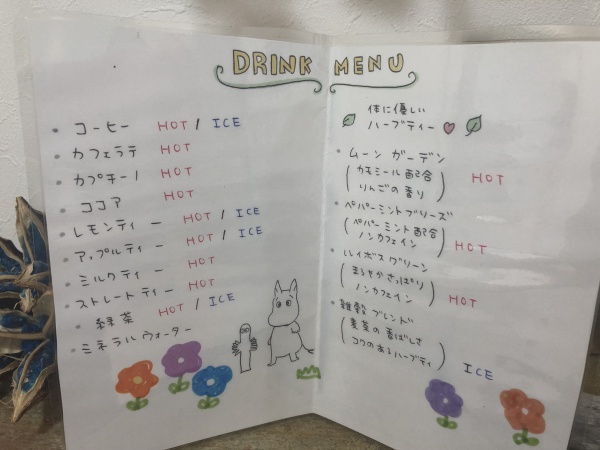 DRINK MENU
コーヒー HOT / ICE
カフェラテ HOT
カプチーノ HOT
ココア HOT
レモンティー HOT / ICE
アップルティー HOT / ICE
ミルクティー HOT
ストレートティー HOT
緑茶 HOT / ICE
ミネラルウォーター
体に優しい
ハーブティー
ムーン ガーデン
(カモミール配合
りんごの香り) HOT
ペパーミントブリーズ
(ペパーミント配合
ノンカフェイン) HOT
ルイボスグリーン
(まろやかさっぱり
ノンカフェイン) HOT
雑穀ブレンド
(麦茶の香ばしさ
コクのあるハーブティ) ICE